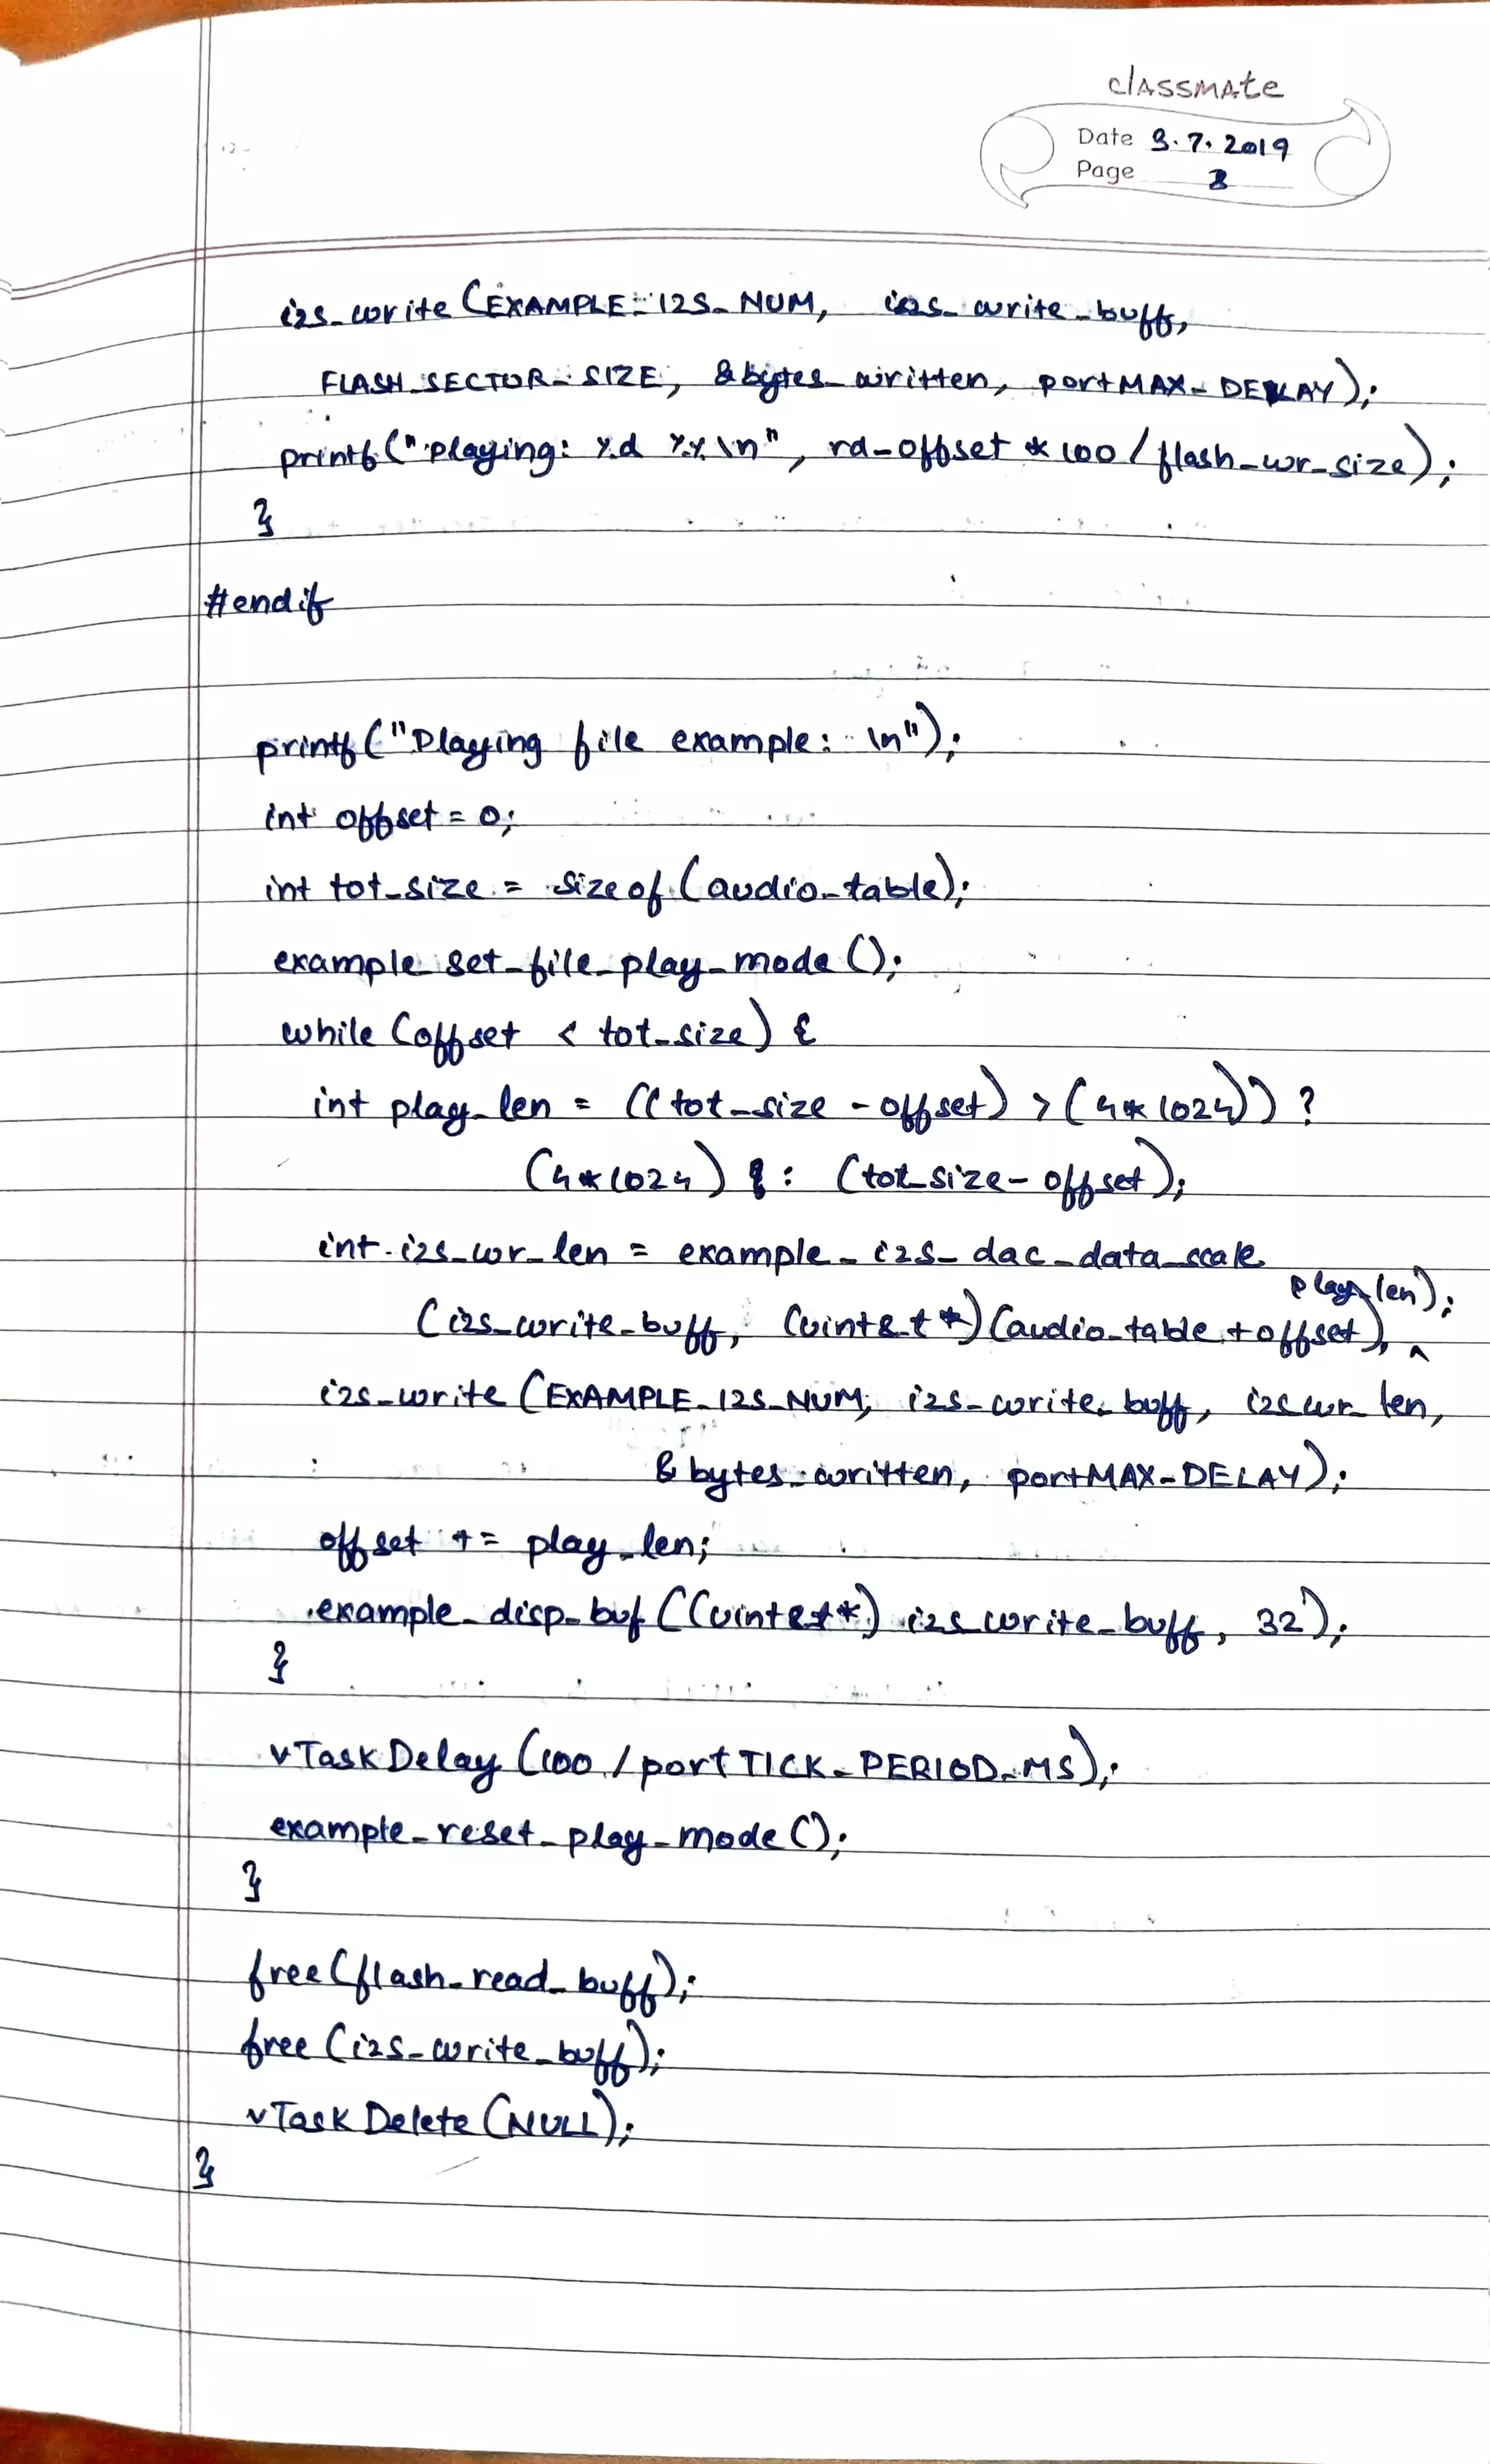 classmate
Date 3.7.2019
Page 3
i2s_write (EXAMPLE_I2S_NUM, i2s_write_buff,
FLASH_SECTOR_SIZE, &bytes_written, portMAX_DELAY);
printf("playing: %d %% \n", rd_offset * 100 / flash_wr_size);
}
#endif
printf("Playing file example: \n");
int offset = 0;
int tot_size = sizeof (audio_table);
example_set_file_play_mode ();
while (offset < tot_size) {
int play_len = ((tot_size - offset) > (4*1024)) ?
(4*1024) : (tot_size - offset);
int i2s_wr_len = example_i2s_dac_data_scale
(i2s_write_buff, (uint8_t *) (audio_table + offset), play_len);
i2s_write (EXAMPLE_I2S_NUM, i2s_write_buff, i2s_wr_len,
&bytes_written, portMAX_DELAY);
offset += play_len;
example_disp_buf ((uint8_t*) i2s_write_buff, 32);
}
vTaskDelay (100 / portTICK_PERIOD_MS);
example_reset_play_mode ();
}
free (flash_read_buff);
free (i2s_write_buff);
vTaskDelete (NULL);
}